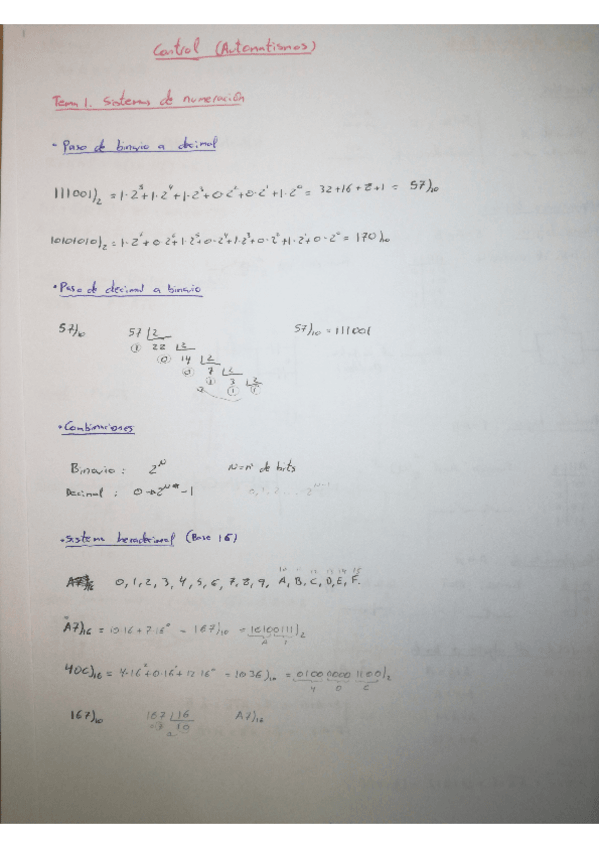 Control (Automatismos)
Tema 1. Sistemas de numeración
· Paso de binario a decimal
111001)₂ = 1·2⁵+1·2⁴+1·2³+0·2²+0·2¹+1·2⁰ = 32+16+8+1 = 57)₁₀
10101010)₂ = 1·2⁷+0·2⁶+1·2⁵+0·2⁴+1·2³+0·2²+1·2¹+0·2⁰ = 170)₁₀
· Paso de decimal a binario
57)₁₀ 57 |2 57)₁₀ = 111001
1 22 |2
0 14 |2
0 7 |2
1 3 |2
1 1
· Combinaciones
Binario : 2ᴺ N = nº de bits
Decimal : 0 → 2ᴺ - 1 0, 1, 2 ... 2ᴺ⁻¹
· Sistema hexadecimal (Base 16)
0, 1, 2, 3, 4, 5, 6, 7, 8, 9, A, B, C, D, E, F.
A7)₁₆ = 10·16 + 7·16⁰ = 167)₁₀ = 10100111)₂
A 7
40C)₁₆ = 4·16²+0·16¹+12·16⁰ = 1036)₁₀ = 0100 0000 1100)₂
4 0 C
167)₁₀ 167 |16 A7)₁₆
10